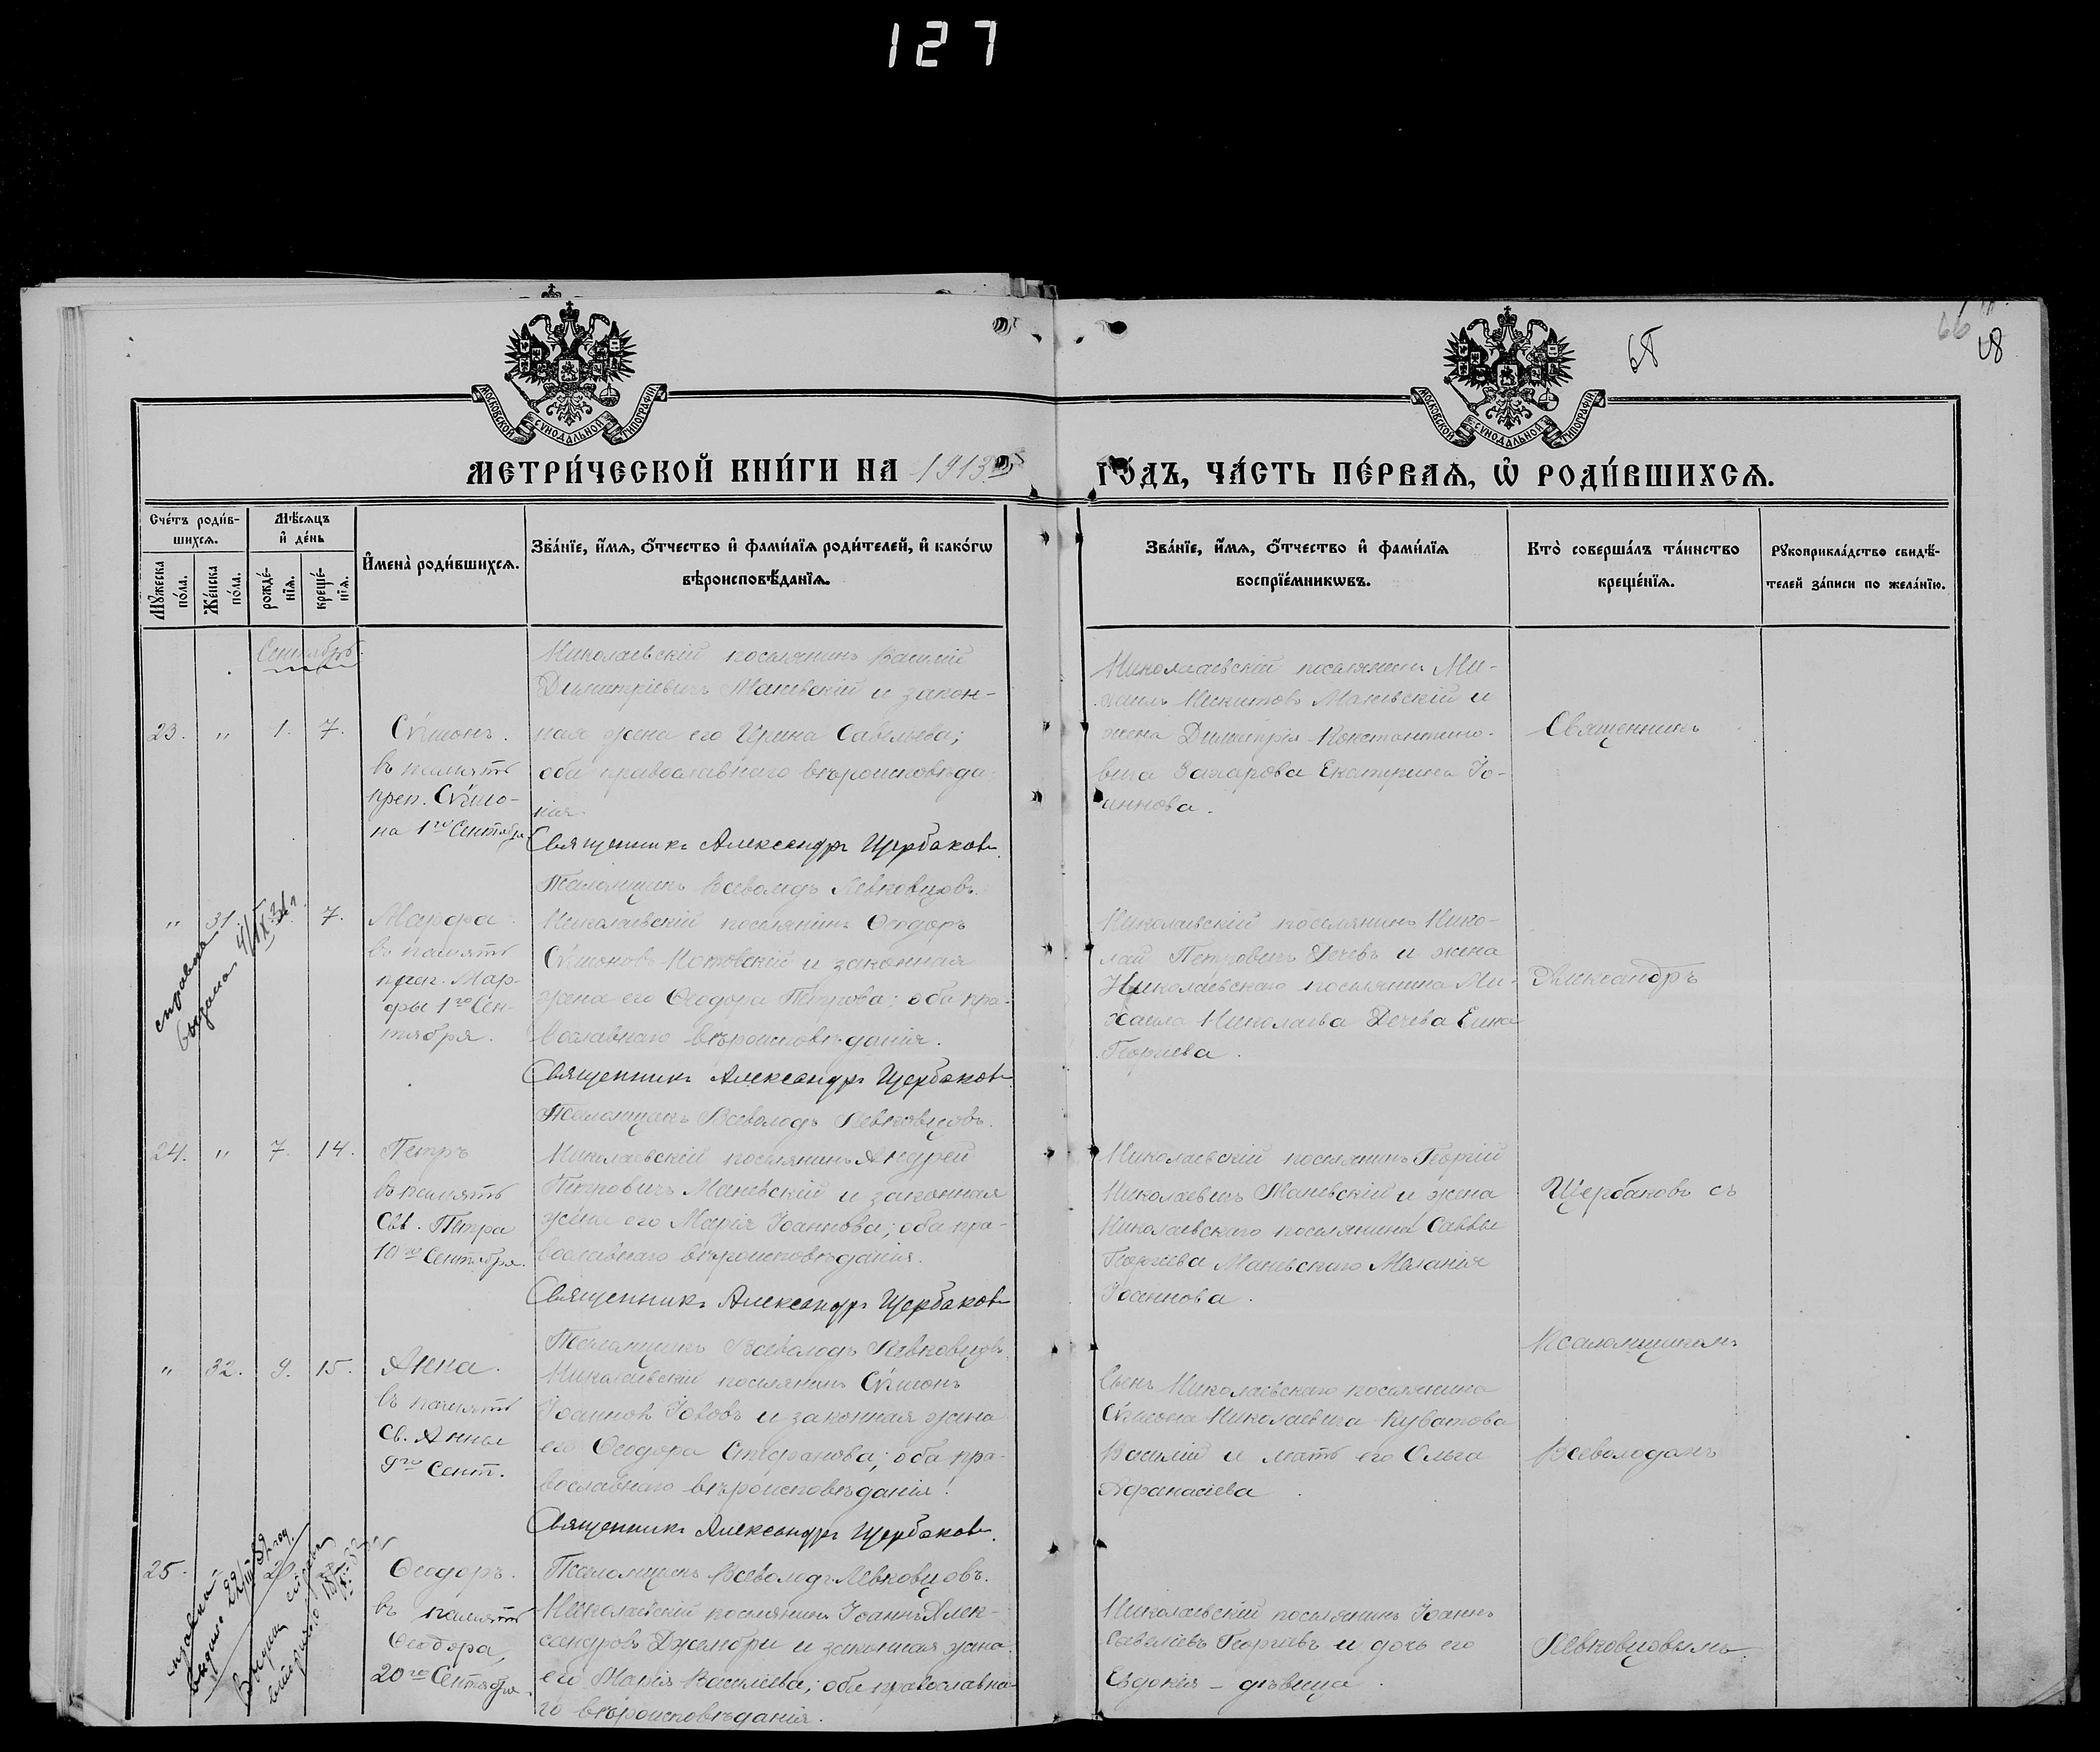 127
66
68
68
МОСКОВСКОЙ СУНОДАЛЬНОЙ ТИПОГРАФІИ
МОСКОВСКОЙ СУНОДАЛЬНОЙ ТИПОГРАФІИ
МЕТРИ́ЧЕСКОЙ КНИ́ГИ НА 1913й
ГО́ДЪ, ЧА́СТЬ ПЕ́РВАѦ, Ѡ҆ РОДИ́ВШИХСѦ.
Сче́тъ роди́в-
шихсѧ.
Мѣ́сѧцъ
и҆ де́нь
Мꙋ́жеска
по́ла.
Же́нска
по́ла.
рожде́-
нїѧ.
креще́-
нїѧ.
И҆мена̀ роди́вшихсѧ.
Зва́нїе, и҆́мѧ, ѻ҆́тчество и҆ фами́лїѧ роди́телей, и҆ како́гѡ
вѣроисповѣ́данїѧ.
Зва́нїе, и҆́мѧ, ѻ҆́тчество и҆ фами́лїѧ
воспрїе́мникѡвъ.
Кто̀ соверша́лъ та́инство
креще́нїѧ.
Рꙋкоприкла́дство свидѣ́-
телей за́писи по жела́нїю.
Сентябрь.
23. " 1. 7.
Сѵмеонъ.
въ память
преп. Сѵмео-
на 1го Сентября
Николаевскій поселянинъ Василій
Димитріевичъ Маневскій и закон-
ная жена его Ирина Савельева;
оба православнаго вѣроисповѣда-
нія.
Священникъ Александръ Щербаковъ
Псаломщикъ Всеволодъ Левковцовъ.
Николаевскій поселянинъ Ми-
хаилъ Никитовъ Маневскій и
жена Димитрія Константино-
вича Захарова Екатерина Іо-
аннова.
Священникъ
" 31. 7.
справка
выдана 4/IX 31 г.
Марѳа.
въ память
преп. Мар-
ѳы 1го Сен-
тября.
Николаевскій поселянинъ Ѳеодоръ
Сѵмеоновъ Котовскій и законная
жена его Ѳеодора Петрова; оба пра-
вославнаго вѣроисповѣданія.
Священникъ Александръ Щербаковъ
Псаломщикъ Всеволодъ Левковцовъ.
Николаевскій поселянинъ Нико-
лай Петровичъ Дечевъ и жена
Николаевскаго поселянина Ми-
хаила Николаева Дечева Елена
Георгіева.
Александръ
24. " 7. 14.
Петръ
въ память
Св. Петра
10го Сентября.
Николаевскій поселянинъ Андрей
Петковичъ Маневскій и законная
жена его Марія Іоаннова; оба пра-
вославнаго вѣроисповѣданія.
Священникъ Александръ Щербаковъ
Псаломщикъ Всеволодъ Левковцовъ.
Николаевскій поселянинъ Георгій
Николаевичъ Маневскій и жена
Николаевскаго поселянина Саввы
Георгіева Маневскаго Меланія
Іоаннова.
Щербаковъ съ
" 32. 9. 15.
Анна.
въ память
Св. Анны
9го Сент.
Николаевскій поселянинъ Сѵмеонъ
Іоанновъ Іововъ и законная жена
его Ѳеодора Стефанова; оба пра-
вославнаго вѣроисповѣданія.
Священникъ Александръ Щербаковъ.
Псаломщикъ Всеволодъ Левковцовъ.
Сынъ Николаевскаго поселянина
Сѵмеона Николаевича Куватова
Василій и мать его Ольга
Аѳанасіева.
Псаломщикомъ
Всеволодомъ
25.
Ѳеодоръ.
въ память
Ѳеодора,
20го Сентября.
Николаевскій поселянинъ Іоаннъ Алек-
сандровъ Джелебри и законная жена
его Марія Василіева; оба православна-
го вѣроисповѣданія.
Николаевскій поселянинъ Іоаннъ
Савеліевъ Георгіевъ и дочь его
Евдокія – дѣвица.
Левковцовымъ.